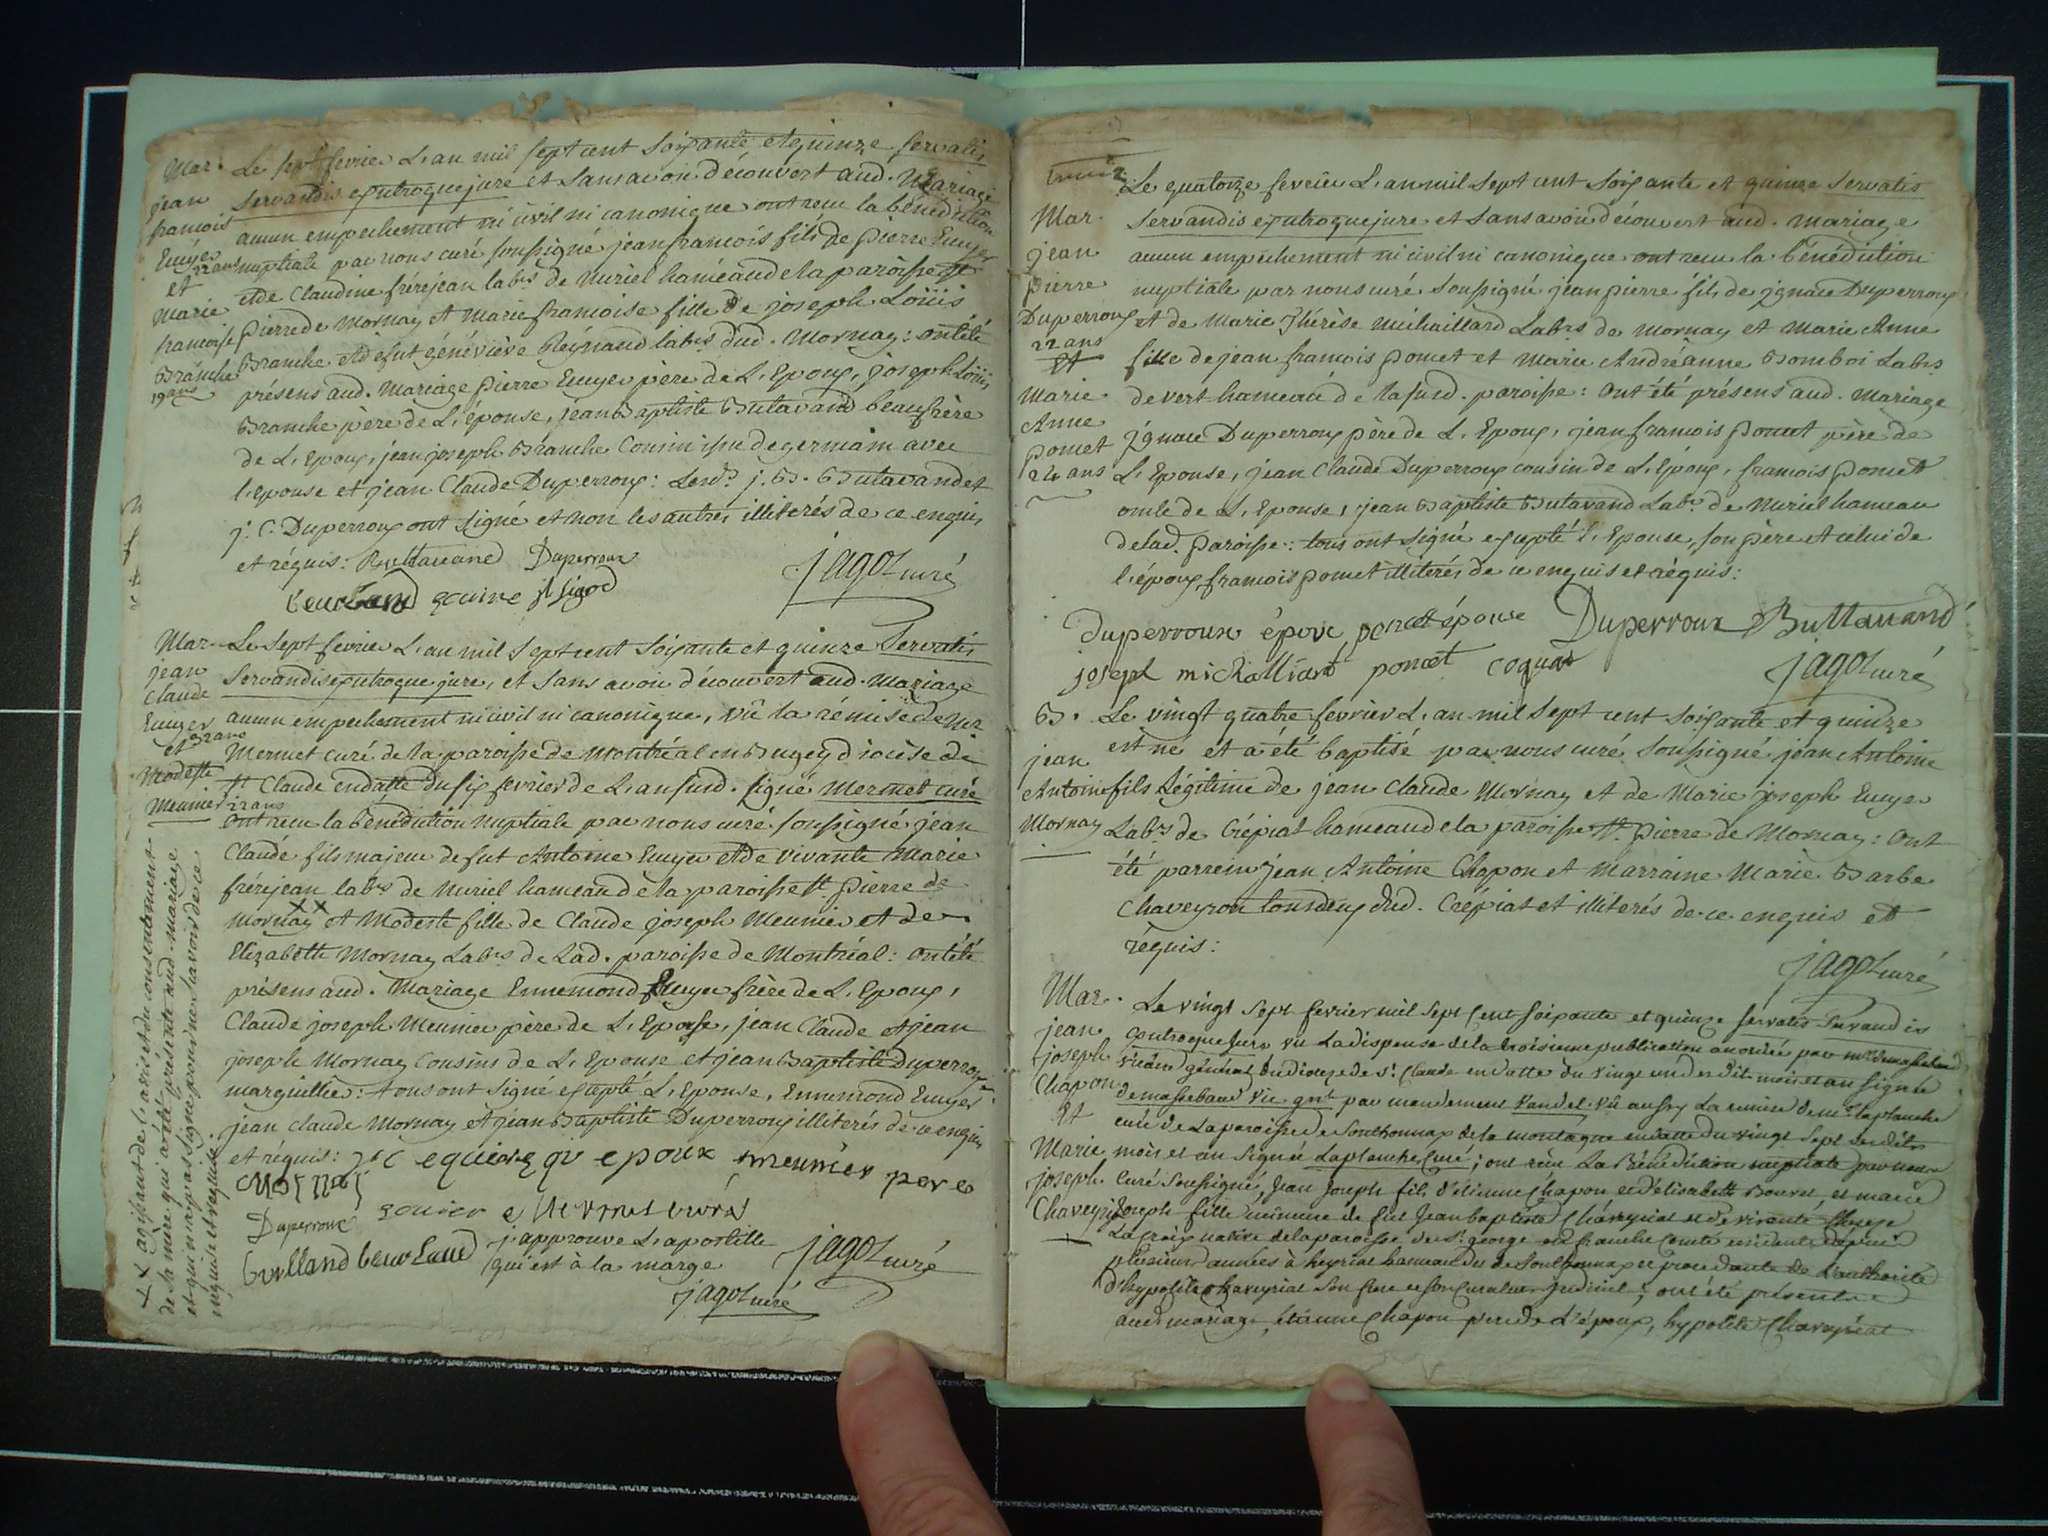 Mar.
jean
francois
Euuyer
22 ans
et
Marie
francoise
Branche
19 ans
Le sept fevrier L'an mil sept cent soixante et quinze servatis
servandis exutroque jure et sans avoir découvert aud. Mariage
aucun empechement ni civil ni canonique ont recu la bénédiction
nuptiale par nous curé soussigné jean francois fils de pierre Euuyer
et de Claudine fréréjean labrs de Nuriel haméau de la paroisse st
pierre de Mornay et Marie francoise fille de joseph Loüis
Branche et defut généviève Réÿnaud labrs dud. Mornay: ont été
présens aud. Mariage pierre Euuyer père de L'Epoux, joseph Loüis
Branche père de L'épouse, jean Baptiste Butavand beaufrère
de L'Epoux, jean joseph Branche Cousin issu de germain avec
l'epouse et jean Claude Duperroux: Lesd. j. B. Butavand et
j. C. Duperroux ont signé et non les autres illiterés de ce enquis
et réquis: Buttavand Duperroux
jagot curé
Mar.
jean
Claude
Euuyer
32 ans
et
Modeste
Meunier
22 ans
Le sept fevrier L'an mil sept cent soixante et quinze servatis
servandis exutroque jure, et sans avoir découvert aud. Mariage
aucun empechement ni civil ni canonique, vû la rémise de Mr
Mermet curé de la paroisse de Montréal en Bugey diocése de
st Claude en datte du six fevrier de L'an susd. signé Mermet curé
ont recu la bénédiction nuptiale par nous curé soussigné jean
Claude fils majeur de fut Antoine Euuyer et de vivante Marie
fréréjean labrs de Nuriel hameau de la paroisse st pierre de
Mornay ×× et Modeste fille de Claude joseph Meunier et de
Elizabeth Mornay Labrs de Lad. paroisse de Montréal: ont été
présens aud. Mariage Ennemond Euuyer frère de L'Epoux,
Claude joseph Meunier père de L'Epouse, jean Claude et jean
joseph Mornay Cousins de L'Epouse et jean Baptiste Duperroux
marguillier: tous ont signé excepté L'Epouse, Ennemond Euuyer
jean Claude Mornay et jean Baptiste Duperroux illiterés de ce enquis
et réquis: epoux meunier pere
Duperroux
j'approuve L'apostille
qui est à la marge
jagot curé
jagot curé
×× agissant de l'avis et du consentement
de sa mère qui a été présente aud. mariage
et qui n'a pas signé pour ne savoir de ce
enquise et requise
Mar.
jean
pierre
Duperroux
22 ans
et
Marie
Anne
pomet
24 ans
Le quatorze fevrier L'an mil sept cent soixante et quinze servatis
servandis exutroque jure et sans avoir découvert aud. Mariage
aucun empechement ni civil ni canonique ont recu la bénédiction
nuptiale par nous curé soussigné jean pierre fils de jgnace Duperroux
et de Marie Thérèse Michaillard Labrs de Mornay et Marie Anne
fille de jean francois pomet et Marie Andréanne Bomboi Labrs
de vers hameau de la susd. paroisse: ont été présens aud. Mariage
jgnace Duperroux père de L'Epoux, jean francois pomet père de
L'Epouse, jean Claude Duperroux cousin de L'Epoux, francois pomet
oncle de L'Epouse, jean Baptiste Butavand Labr. de Nuriel hameau
de lad. paroisse: tous ont signé excepté l'Epouse, son père et celui de
l'époux, francois pomet illiterés de ce enquis et réquis:
Duperroux Buttavand
joseph michalliard poncet
jagot curé
B.
jean
Antoine
Mornay
Le vingt quatre fevrier L'an mil sept cent soixante et quinze
est né et a été baptisé par nous curé soussigné jean Antoine
fils Légitime de jean Claude Mornay et de Marie joseph Euuyer
Labrs de Crépiat hameau de la paroisse st. pierre de Mornay: Ont
été parrein jean Antoine Chapon et Marraine Marie Barbe
Chaveyron tous deux dud. Crépiat et illiterés de ce enquis et
réquis:
jagot curé
Mar.
jean
joseph
Chapon
et
Marie
joseph
Chaveyriat
Le vingt sept fevrier mil sept cent soixante et quinze servatis servandis
exutroque jure vu La dispense de la troisieme publication accordée par mr
vicaire général du dioceze de st. Claude en datte du vingt un desdits mois et an signée
vic gnl par mandement vandel. vû aussy La remise de mr Laplanche
curé de La paroisse de Southonnax de la montagne en datte du vingt sept desdits
mois et an signée Laplanche curé; ont reçu La Bénédiction nuptiale par nous
curé soussigné, jean joseph fils d'étienne Chapon et d'élisabeth Bouvet et marie
joseph fille mineure de fut jean baptiste Chaveyriat et de vivante
La croix native de la paroisse de st. george en franche comté residente depuis
plusieurs années à heyriat hameau du de Southonnax et procedante de L'authorité
d'hypolite Chaveyriat son frere et son Curateur judiciel; ont été présents
aud. mariage, étienne Chapon pere de L'époux, hypolite Chaveyriat